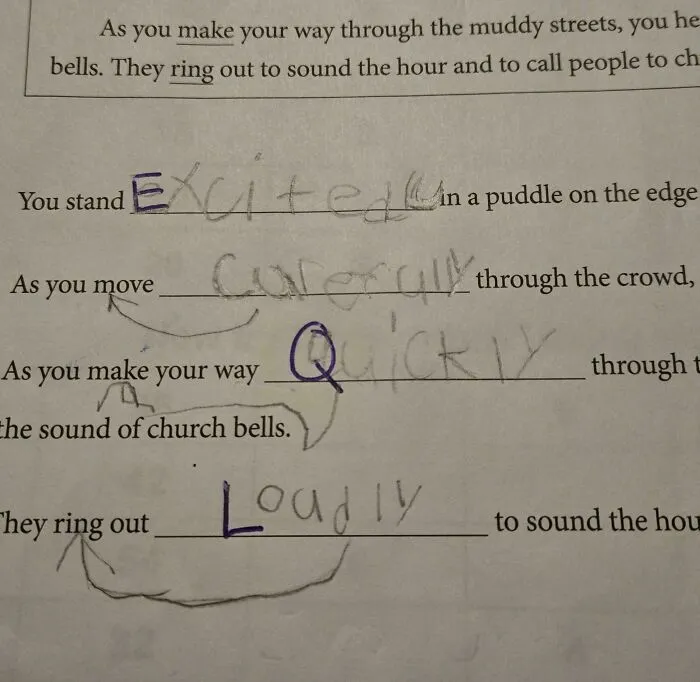 As you make your way through the muddy streets, you he
bells. They ring out to sound the hour and to call people to ch
You stand Excitedly in a puddle on the edge
As you move Carefully through the crowd,
As you make your way Quickly through t
the sound of church bells.
They ring out Loudly to sound the hou